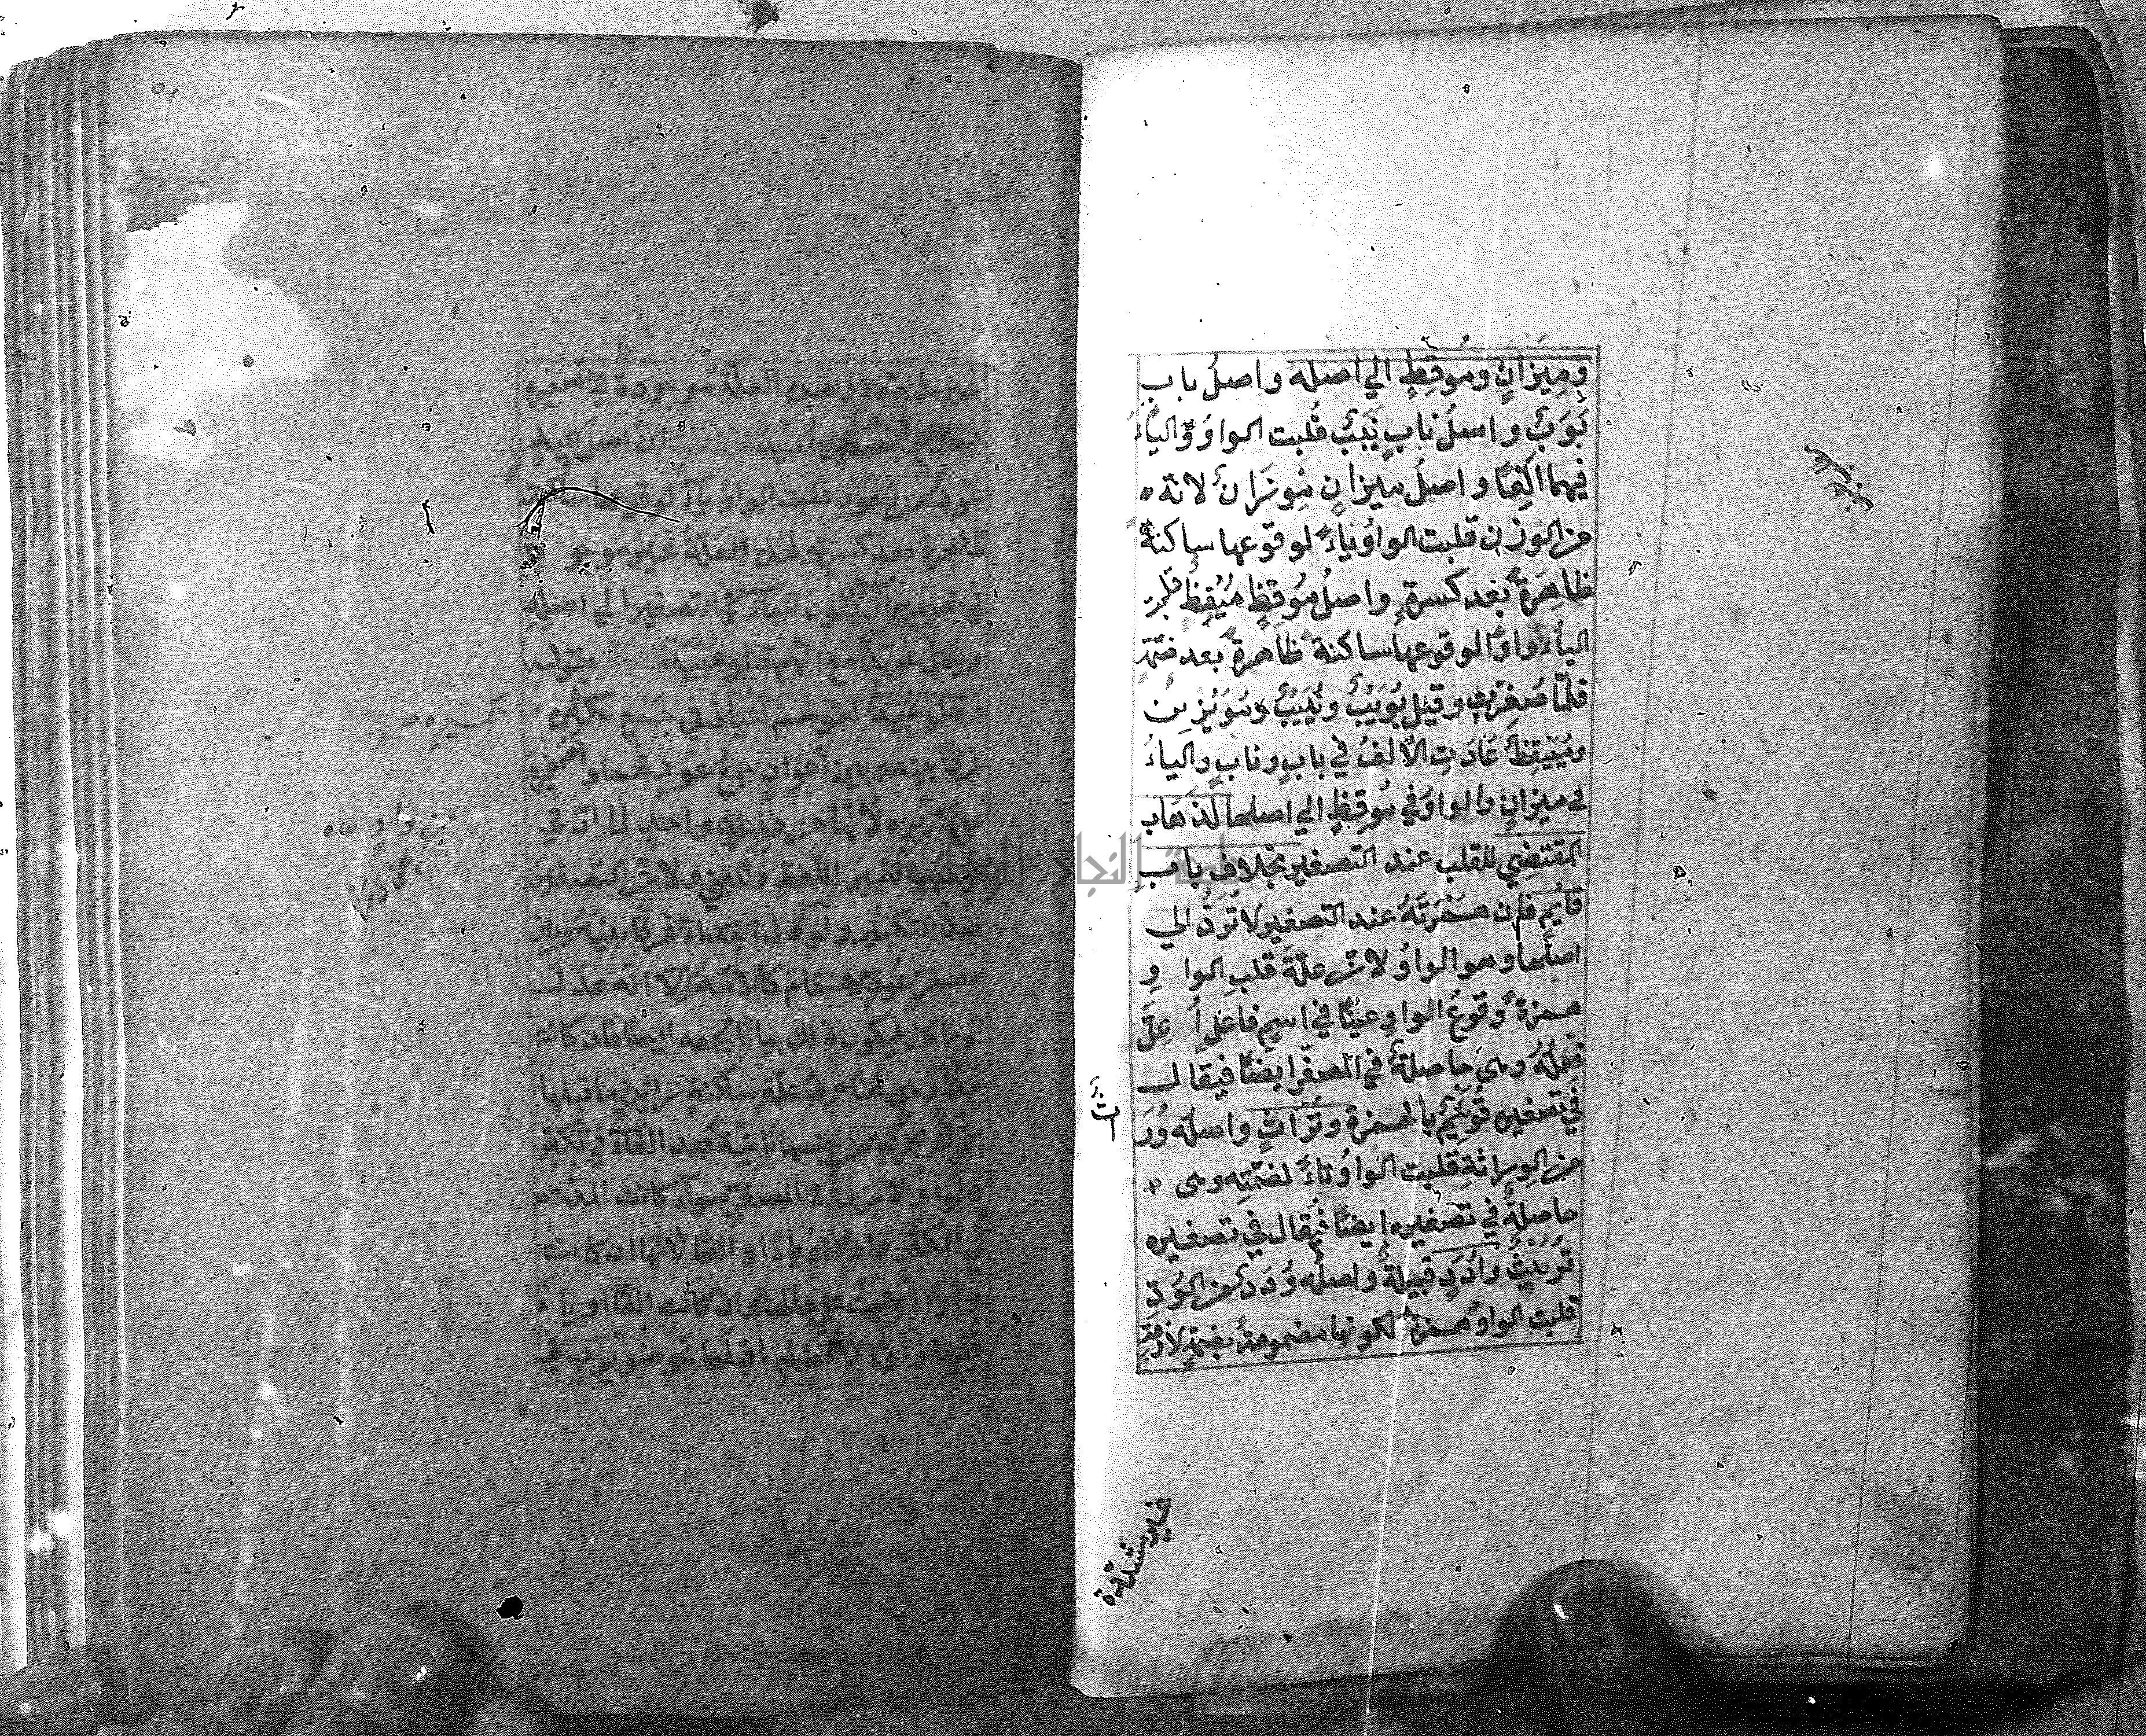 وميزان وموقظ الي اصله واصل باب
بوب واصل ناب نيب قلبت الواو والياء
فيهما الفا واصل ميزان موزان لانه
من الوزن قلبت الواو ياء لوقوعها ساكنة
ظاهرة بعد كسرة واصل موقظ ميقظ قلبت
الياء واوا لوقوعها ساكنة ظاهرة بعد ضمة
فلما صغرت وقيل بويب ونييب ومويزين
ومييقظ عادت الالف في باب وناب والياء
في ميزان والواو في موقظ الي اصلها لذهاب
المقتضي للقلب عند التصغير بخلاف باب
قايم فان همزته عند التصغير لا ترد الي
اصلها وهو الواو لان علة قلب الواو
همزة وقوع الواو عينا في اسم فاعل اعل
فعله وهي حاصلة في المصغر ايضا فيقال
في تصغيره قويئم بالهمزة وتراث واصله ور
اث
من الوراثة قلبت الواو تاء لضمته وهي
حاصلة في تصغيره ايضا فيقال في تصغيره
تويريث وادد قبيلة واصله ودد من الود
قلبت الواو همزة لكونها مضمومة بضمة لازمة
غير مشددة
غير مشددة وهذه العلة موجودة في تصغيره
فيقال في تصغيره اديد ان اصل عيد
عود من العود قلبت الواو ياء لوقوعها ساكنة
ظاهرة بعد كسرة وهذه العلة غير موجودة
في تصغيره ان يعود الياء في التصغير الي اصله
ويقال عويد مع انهم قالوا عييد بقوله
وقالوا عييد لقولهم اعياد في جمع تكسيره
تكسيره
فرقا بينه وبين اعواد جمع عود فحملوا تصغيره
علي تكبيره لانهما من واحد لما ان في
من واد
تغيير اللفظ والمعني ولان التصغير
ضد التكبير ولو قال ابتداء فرقا بينه وبين
مصغر عود لاستقام كلامه الا انه عدل
الي ما قال ليكون ذلك بيانا لجمعه ايضا فان كانت
مدة وهي هنا حرف علة ساكنة زائدة ما قبلها
متحرك بحركة من جنسها ثانية بعد الفاء في المكبر
فالواو لازمة في المصغر سواء كانت المدة
في المكبر واوا او ياء او الفا لانها ان كانت
واوا بقيت علي حالها وان كانت الفا او ياء
قلبتا واوا لانضمام ما قبلها نحو ضويرب في